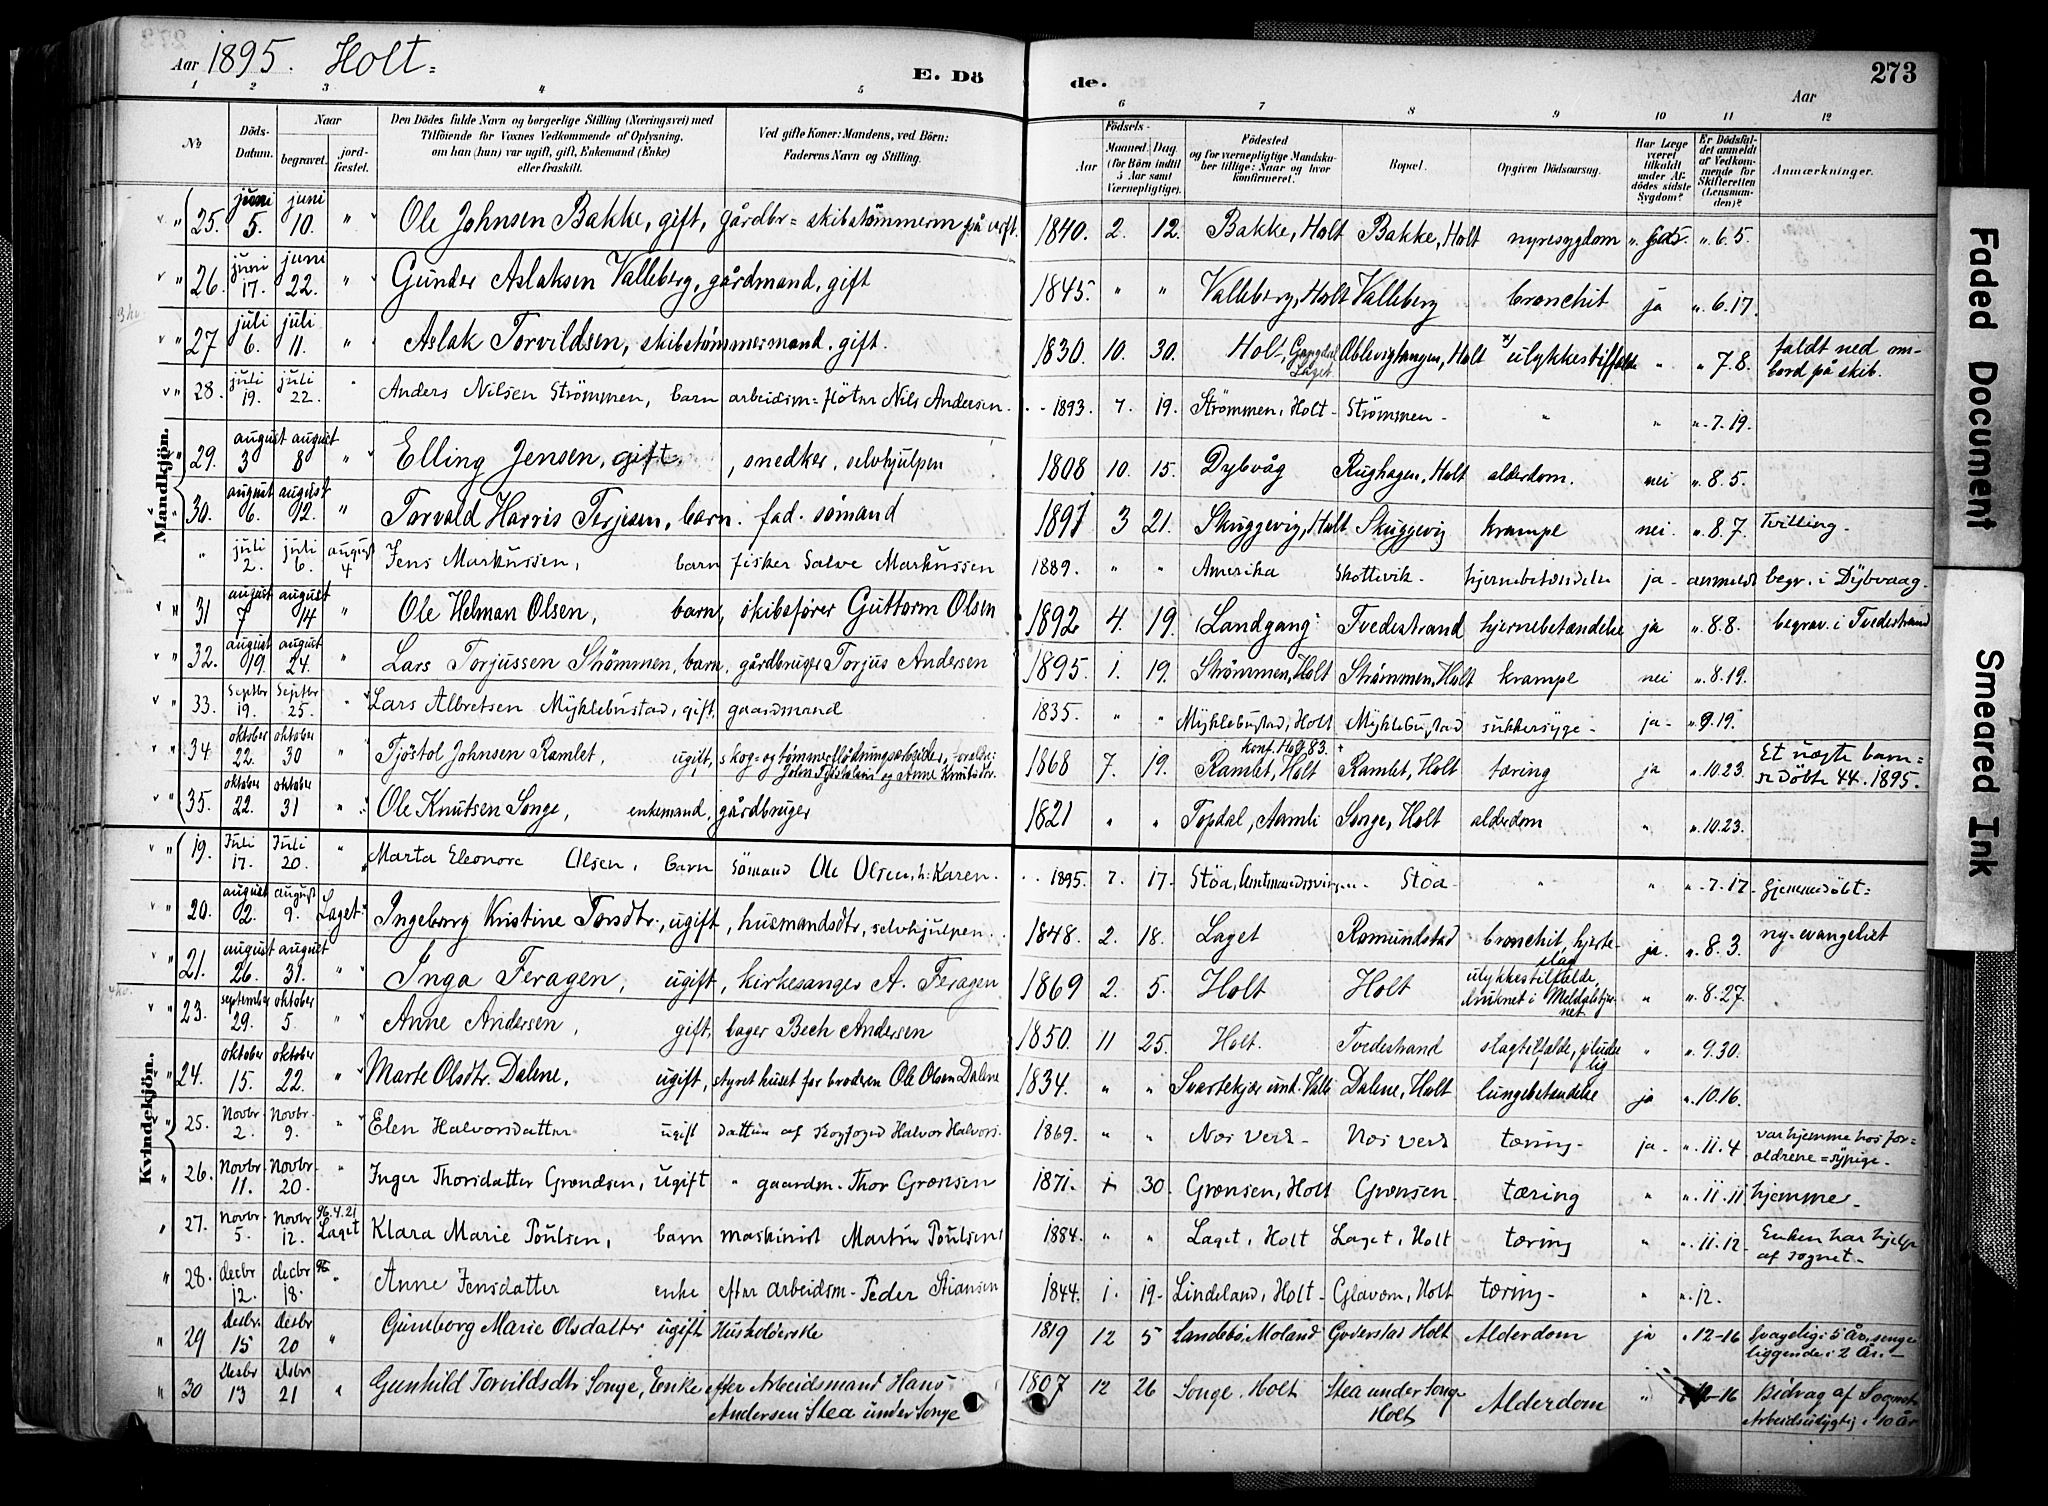 Aar 1895. Holt.
E. Döde.
Aar
273
1 2 3 4 5 6 7 8 9 10 11 12
№ Döds-Datum. Naar begravet. jordfæstet. Den Dödes fulde Navn og borgerlige Stilling (Næringsvei) med Tilföiende for Voxnes Vedkommende af Oplysning, om han (hun) var ugift, gift, Enkemand (Enke) eller fraskilt. Ved gifte Koner: Mandens, ved Börn: Faderens Navn og Stilling. Födsels- Aar Maaned. Dag. (for Börn indtil 5 Aar samt Værnepligtige). Födested og for værnepligtige Mandskaber tillige: Naar og hvor konfirmeret. Bopæl. Opgiven Dödsaarsag. Har Læge været tilkaldt under Afdödes sidste Sygdom? Er Dödsfaldet anmeldt af Vedkommende for Skifteretten (Lensmanden)? Anmærkninger.
Mandkjön.
" 25. juni 5. juni 10. " Ole Johnsen Bakke, gift, gårdbr= skibstömmerm på verft. 1840. 2. 12. Bakke, Holt Bakke, Holt nyresygdom ". 6.5.
" 26. juni 17. juni 22. " Gunder Aslaksen Valleberg, gårdmand, gift 1845. " " Valleberg, Holt Valleberg bronchit ja ". 6.17.
" 27 juli 6. juli 11. " Aslak Torvildsen, skibstømmermand. gift. 1830. 10. 30. Holt, Laget Ablevigtangen, Holt ulykkestilfælde " " 7.8. faldt ned ombord på skib.
" 28. juli 19. juli 22. " Anders Nilsen Strömmen, barn arbeidsm= flöter Nils Andersen. 1893. 7. 19. Strömmen, Holt Strömmen " " ". 7. 19.
" 29. august 3 august 8 " Elling Jensen, gift, , snedker, selvhjulpen 1808 10. 15. Dybvåg Rughagen, Holt alderdom. nei ". 8.5.
" 30. august 6. august 12. " Torvald Harris Terjesen, barn. fad. sömand 1891 3 21. Skuggevig, Holt Skuggevig krampe nei. ". 8.7. Tvilling.
" juli 2. juli 6. august 4 Jens Markussen, barn fisker Salve Markussen 1889. " " Amerika Skottevik hjernebetændelse ja anmeldt begr. i Dÿbvaag.
" 31 august 7 august 14 " Ole Helman Olsen, barn, skibsfører Guttorm Olsen 1892 4. 19. "Landgang" Tvedestrand hjernebetændelse ja " 8.8. begrav. i Tvedestrand
" 32. august 19. august 24. " Lars Torjussen Strømmen, barn, gårdbruger Torjus Andersen 1895 1. 19. Strømmen, Holt Strømmen, Holt krampe nei ". 8.19.
" 33. Septbr 19. Septbr 25. " Lars Albretsen Mÿklebustad, gift, gaardmand 1835. " " Mÿklebustad, Holt Mÿklebustad sukkersyge ja ". 9.19.
" 34. oktober 22. oktober 30 " Tjöstol Johnsen Ramlet, ugift, skog- og tømmerflödningsarbeider, foreldre: John Tjöstolsen og Anne Knutsdtr. 1868 7. 19. konf. Holt 83. Ramlet, Holt Ramlet, Holt tæring ja ". 10.23. Et uægte barn = se Döbte 44. 1895.
" 35. oktober 22. oktober 31 " Ole Knutsen Songe, enkemand, gårdbruger 1821 " " Topdal, Aamli Songe, Holt alderdom " ". 10.23.
Kvindekjön.
" 19. Juli 17. Juli 20. " Marta Eleonore Olsen, barn Sömand Ole Olsen, h: Karen. 1895. 7. 17. Stöa, Stöa " " ". 7.17. hjemmedöbt=
" 20. august 2. august 9. Laget Ingeborg Kristine Torsdtr, ugift, husmandsdtr, selvhjulpen. 1848. 2. 18. Laget Ramundstad bronchit, hjerteslag ja. ". 8.3. ny-evangelist
" 21. august 26. august 31. " Inga Feragen, ugift, kirkesanger A. Feragen 1869 2. 5. Holt Holt ulykkestilfælde, druknet i Meldalstjernet " ". 8.27.
" 23. september 29. oktober 5. " Anne Andersen, gift, bager Bech Andersen 1850. 11 25. Holt. Tvedestrand slagtilfælde, pludselig " ". 9.30.
" 24. oktober 15. oktober 22. " Marte Olsdtr. Dalene, ugift, styret huset for broderen Ole Olsen Dalene 1834. " " Svartekjær und. Dalene, Holt lungebetændelse ja ". 10.16.
" 25. Novbr 2. Novbr. 9. " Elen Halvorsdatter ugift datter af skogfoged Halvor Halvors. 1869. " " Nes Verk Nes Verk tæring ja ". 11.4 var hjemme hos forældrene = sÿpige.
" 26. Novbr. 11. Novbr. 20. " Inger Thorsdatter Grændsen, ugift " gaardm. Thor Grænsen 1871. 30. Grænsen, Holt Grænsen tæring " ". 11.11 hjemme
" 27. Novbr. 5. Novbr. 12. 96.4.21 Laget Klara Marie Poulsen, barn maskinist Martin Poulsen 1884. " " Laget, Holt Laget, Holt tæring " ". 11.12. Enken har hjelp af sognet.
" 28. decbr 12. decbr 18. " Anne Jensdatter enke efter arbeidsm. Peder Stiansen 1844. 1. 19. Lindeland, Holt Glavom, Holt tæring " ". 12.
" 29 desbr. 15 desbr 20 " Gunborg Marie Olsdatter ugift Husholderske 1819 12 5 Landebö, Moland Goderstad Holt Alderdom ja " 12-16 Svagelig i 5 År, sengeliggende i 2 År.
" 30 Desbr 13 desbr 21 " Gunhild Torvildsdtr Songe, Enke efter Arbeidsmand Hans Andersen Stea under Songe 1807 12 26 Songe. Holt Stea under Songe Holt Alderdom " 12-16 Bidrag af Sognet. Arbeidsudygtig i 10 År
Faded Document
Smeared Ink